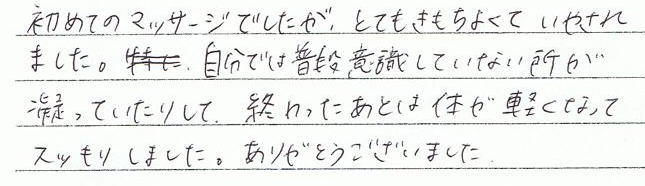 初めてのマッサージでしたが、とてもきもちよくていやされ
ました。特に、自分では普段意識していない所が
凝っていたりして、終わったあとは体が軽くなって
スッキリしました。ありがとうございました。